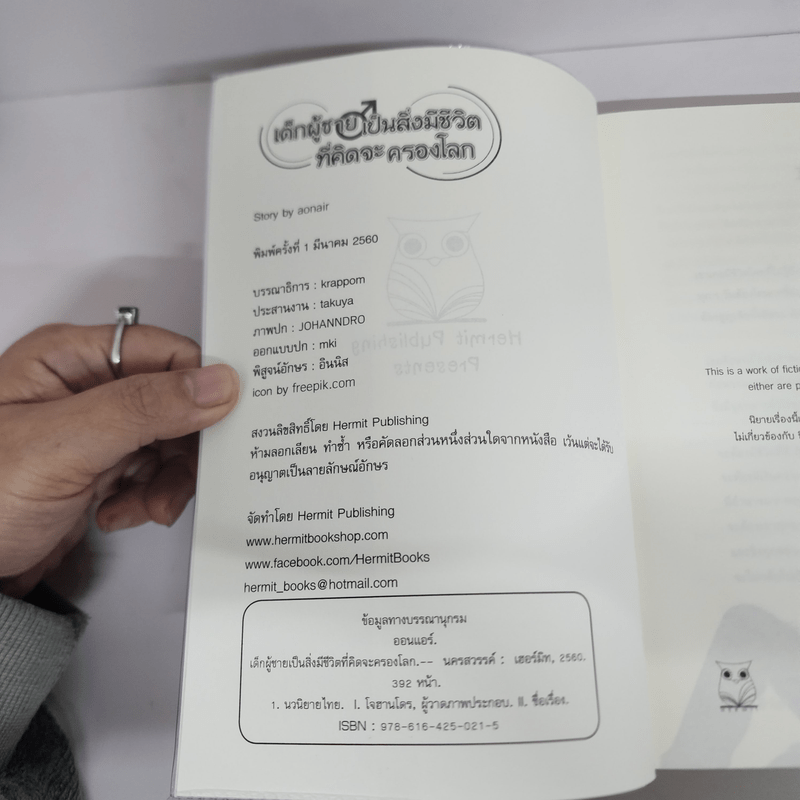 เด็กผู้ชายเป็นสิ่งมีชีวิต
ที่คิดจะครองโลก
Story by aonair
พิมพ์ครั้งที่ 1 มีนาคม 2560
บรรณาธิการ : krappom
ประสานงาน : takuya
ภาพปก : JOHANNDRO
ออกแบบปก : mki
พิสูจน์อักษร : อินนิส
icon by freepik.com
สงวนลิขสิทธิ์โดย Hermit Publishing
ห้ามลอกเลียน ทำซ้ำ หรือคัดลอกส่วนหนึ่งส่วนใดจากหนังสือ เว้นแต่จะได้รับ
อนุญาตเป็นลายลักษณ์อักษร
จัดทำโดย Hermit Publishing
www.hermitbookshop.com
www.facebook.com/HermitBooks
hermit_books@hotmail.com
ข้อมูลทางบรรณานุกรม
ออนแอร์.
เด็กผู้ชายเป็นสิ่งมีชีวิตที่คิดจะครองโลก.-- นครสวรรค์ : เฮอร์มิท, 2560.
392 หน้า.
1. นวนิยายไทย. I. โจฮานโดร, ผู้วาดภาพประกอบ. II. ชื่อเรื่อง.
ISBN : 978-616-425-021-5
This is a work of fictio
either are p
นิยายเรื่องนี้
ไม่เกี่ยวข้องกับ
HERMIT